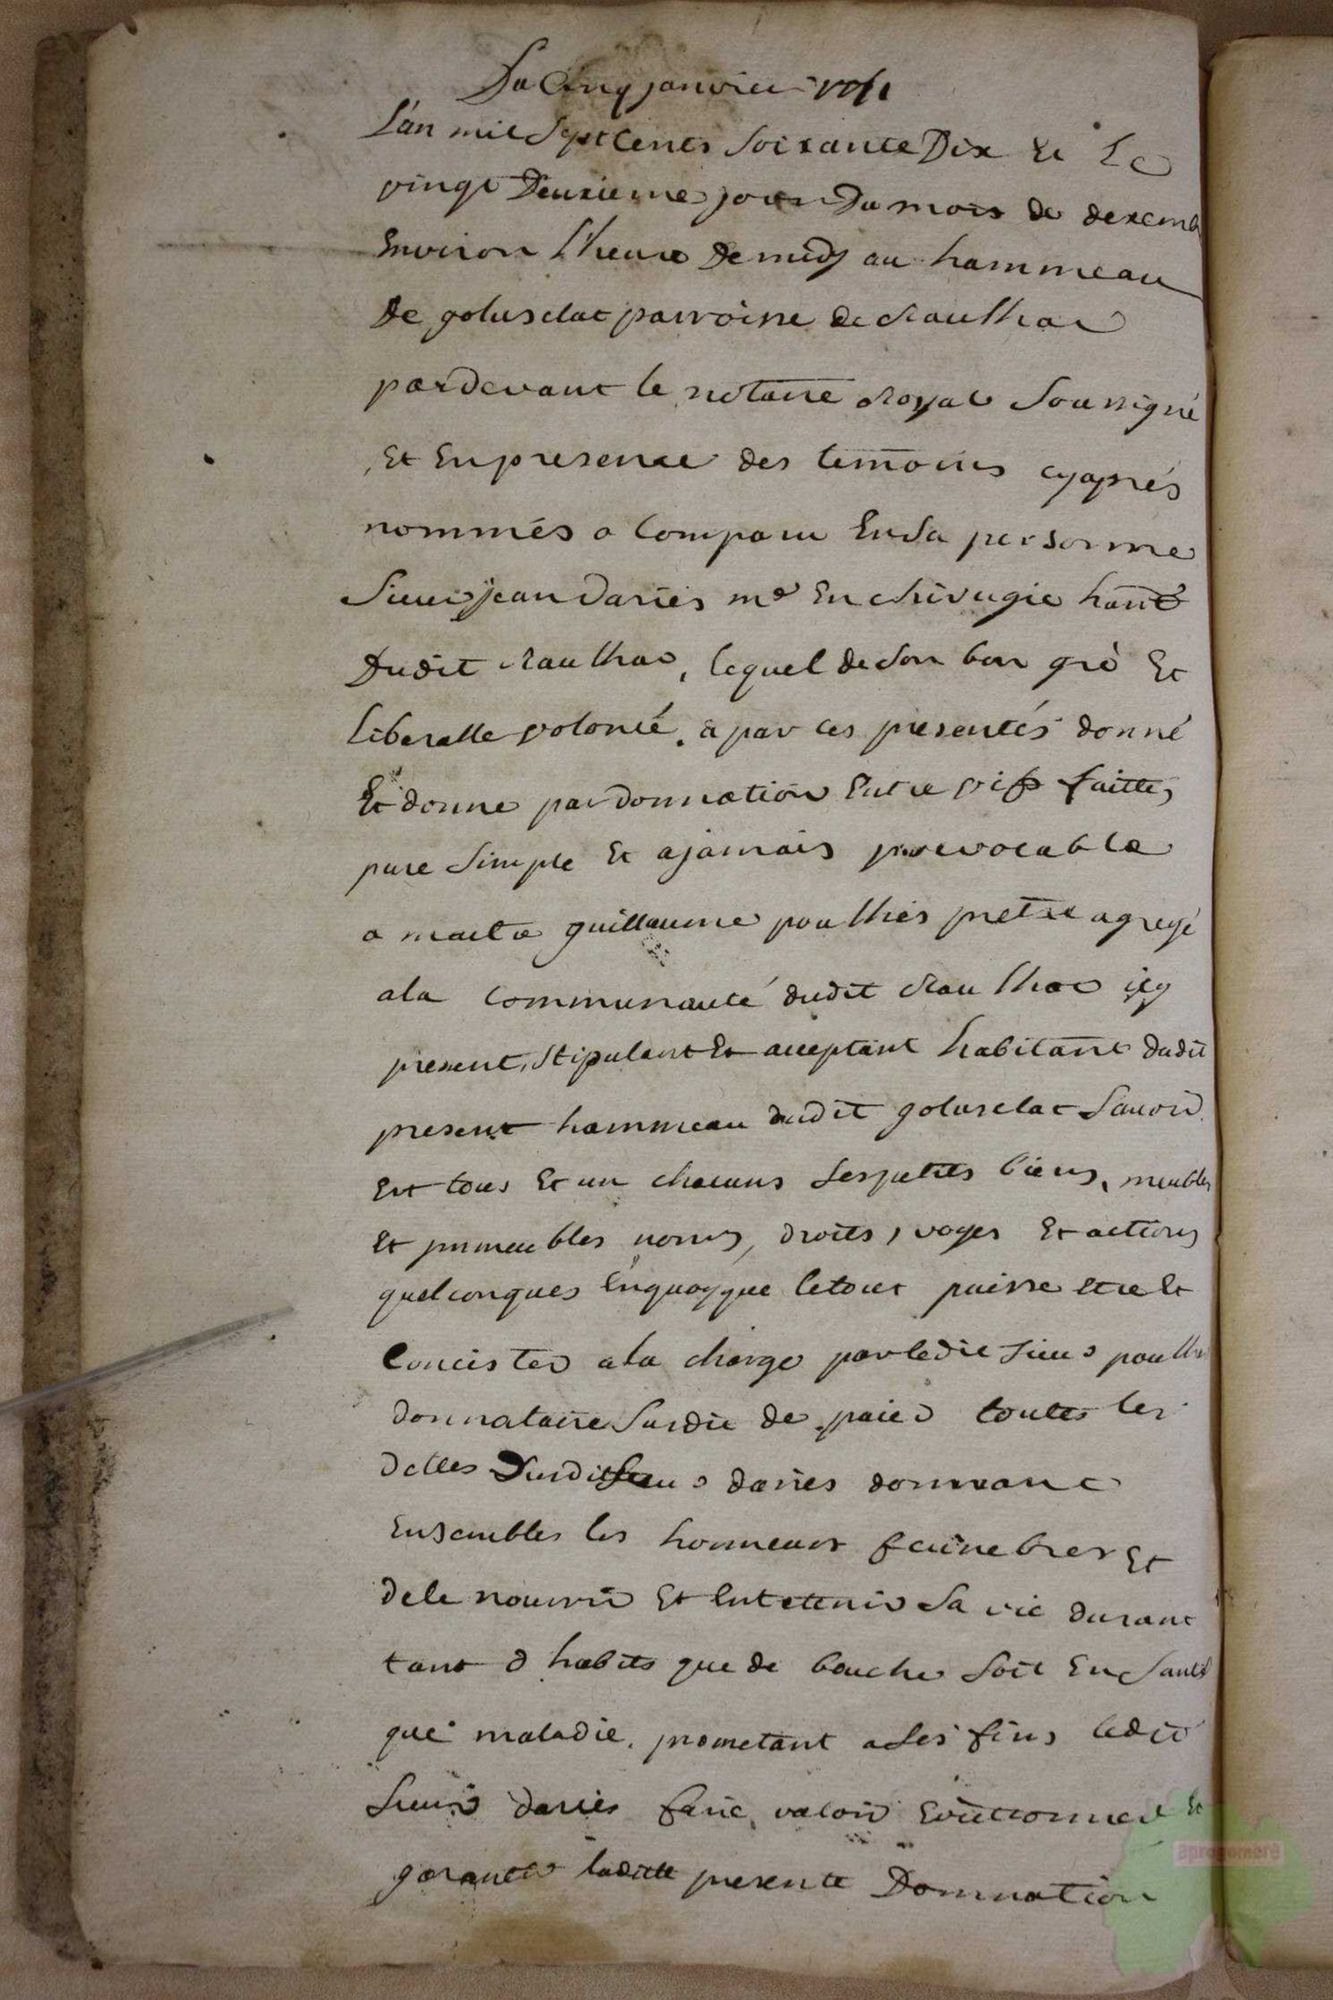 Du Cinq janvier 1771
L'an mil Sept Cents Soixante Dix Et Le
vingt Deuxieme jour Du mois de dexemb
Environ l'heure De midy au hammeau
De golusclat parroisse de Raulhac
pardevant le notaire Royal Soussigné
Et En presence des temoins cyaprés
nommés a Comparu En Sa personne
Sieur jean Dariés me En chirugie hant
Dudit Raulhac, lequel de Son bon gré Et
liberalle volonté, a par ces presentés donné
Et donne par donnation Entre vifs faitte,
pure Simple Et ajamais yrrevocable
a maitre guillaume poulhés pretre agregé
ala Communauté dudit Raulhac icy
present, Stipulant Et acceptant habitant dudit
present hammeau dudit golusclat Savoir
Est tous Et un chacuns Ses petits biens, meubles
Et ymmeubles noms, droits, voyes Et actions
quelconques Enquoyque letout puisse etre Et
Concister ala charge par ledit Sieur poulhes
donnataire Susdit de paier toutes les
dettes Dudit Sieur dariés donnant
Ensembles les honneurs feunebres Et
dele nourrir Et Entettenir Sa vie durant
tant d habits que de bouche Soit En Santé
que maladie, prometant a Ses fins ledit
Sieur dariés faire valoir Et
garantir laditte presente Donnation
aprogemere